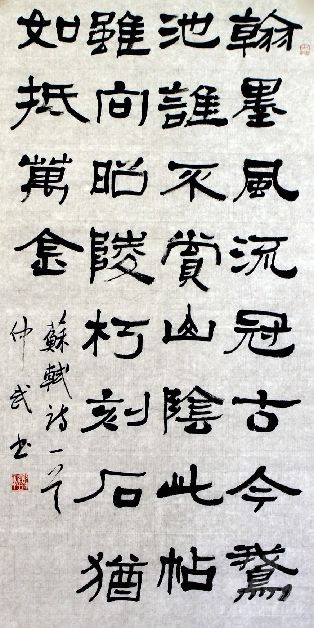 翰墨風流冠古今鵞
池誰不賞山陰此帖
雖向昭陵朽刻石猶
如抵萬金
蘇軾詩一首
仲武书